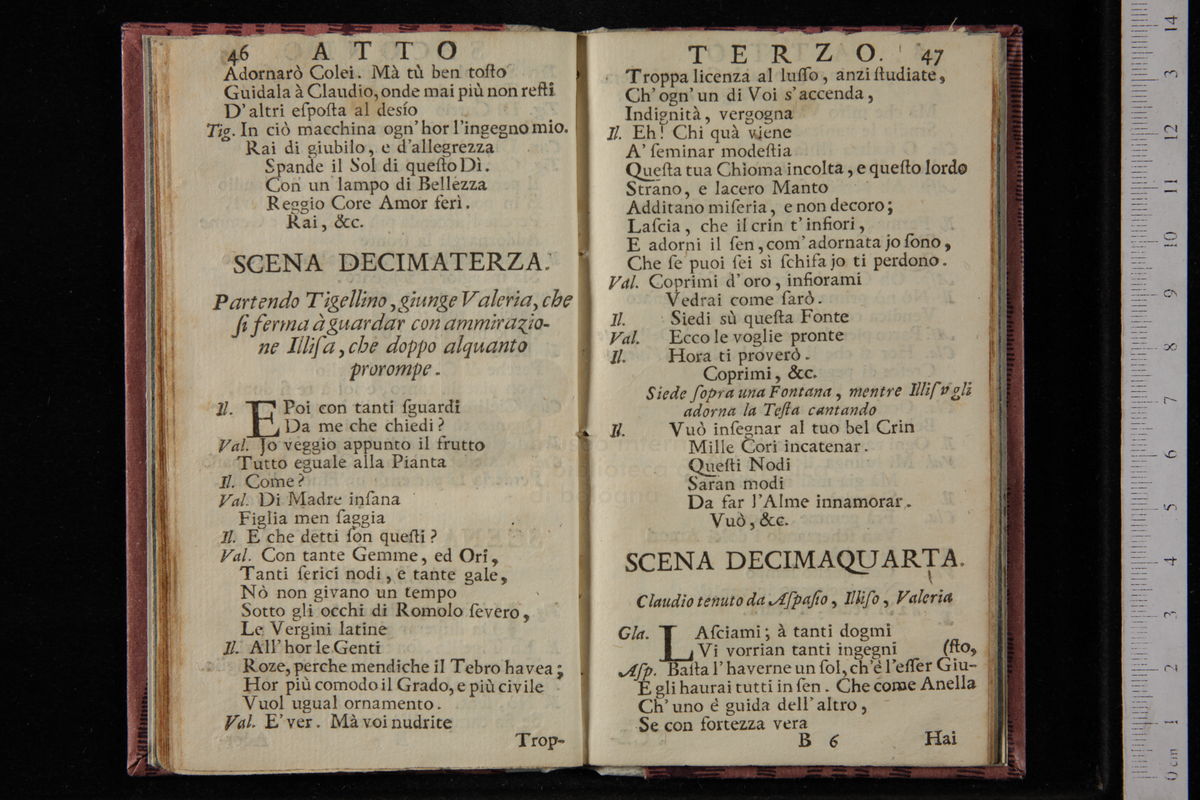 46 ATTO
Adornarò Colei. Mà tù ben toſto
Guidala à Claudio, onde mai più non reſti
D'altri eſpoſta al desío
Tig. In ciò macchina ogn'hor l'ingegno mio.
Rai di giubilo, e d'allegrezza
Spande il Sol di queſto Dì.
Con un lampo di Bellezza
Reggio Core Amor ferì.
Rai, &c.
SCENA DECIMATERZA.
Partendo Tigellino, giunge Valeria, che
ſi ferma à guardar con ammirazio-
ne Illiſa, che doppo alquanto
prorompe.
Il. E Poi con tanti ſguardi
Da me che chiedi?
Val. Jo veggio appunto il frutto
Tutto eguale alla Pianta
Il. Come?
Val. Di Madre inſana
Figlia men ſaggia
Il. E che detti ſon queſti?
Val. Con tante Gemme, ed Ori,
Tanti ſerici nodi, e tante gale,
Nò non givano un tempo
Sotto gli occhi di Romolo ſevero,
Le Vergini latine
Il. All'hor le Genti
Roze, perche mendiche il Tebro havea;
Hor più comodo il Grado, e più civile
Vuol ugual ornamento.
Val. E' ver. Mà voi nudrite
Trop-
TERZO. 47
Troppa licenza al luſſo, anzi ſtudiate,
Ch'ogn'un di Voi s'accenda,
Indignità, vergogna
Il. Eh! Chi quà viene
A' ſeminar modeſtia
Queſta tua Chioma incolta, e queſto lordo
Strano, e lacero Manto
Additano miſeria, e non decoro;
Laſcia, che il crin t'infiori,
E adorni il ſen, com'adornata jo ſono,
Che ſe puoi ſei sì ſchifa jo ti perdono.
Val. Coprimi d'oro, infiorami
Vedrai come ſarò.
Il. Siedi sù queſta Fonte
Val. Ecco le voglie pronte
Il. Hora ti proverò.
Coprimi, &c.
Siede ſopra una Fontana, mentre Illiſa gli
adorna la Teſta cantando
Il. Vuò inſegnar al tuo bel Crin
Mille Cori incatenar.
Queſti Nodi
Saran modi
Da far l'Alme innamorar.
Vuò, &c.
SCENA DECIMAQUARTA.
Claudio tenuto da Aſpaſio, Illiſo, Valeria
Gla. LAſciami; à tanti dogmi
Vi vorrian tanti ingegni (ſto,
Aſp. Baſta l'haverne un ſol, ch'è l'eſſer Giu-
E gli haurai tutti in ſen. Che come Anella
Ch'uno è guida dell'altro,
Se con fortezza vera
B 6 Hai